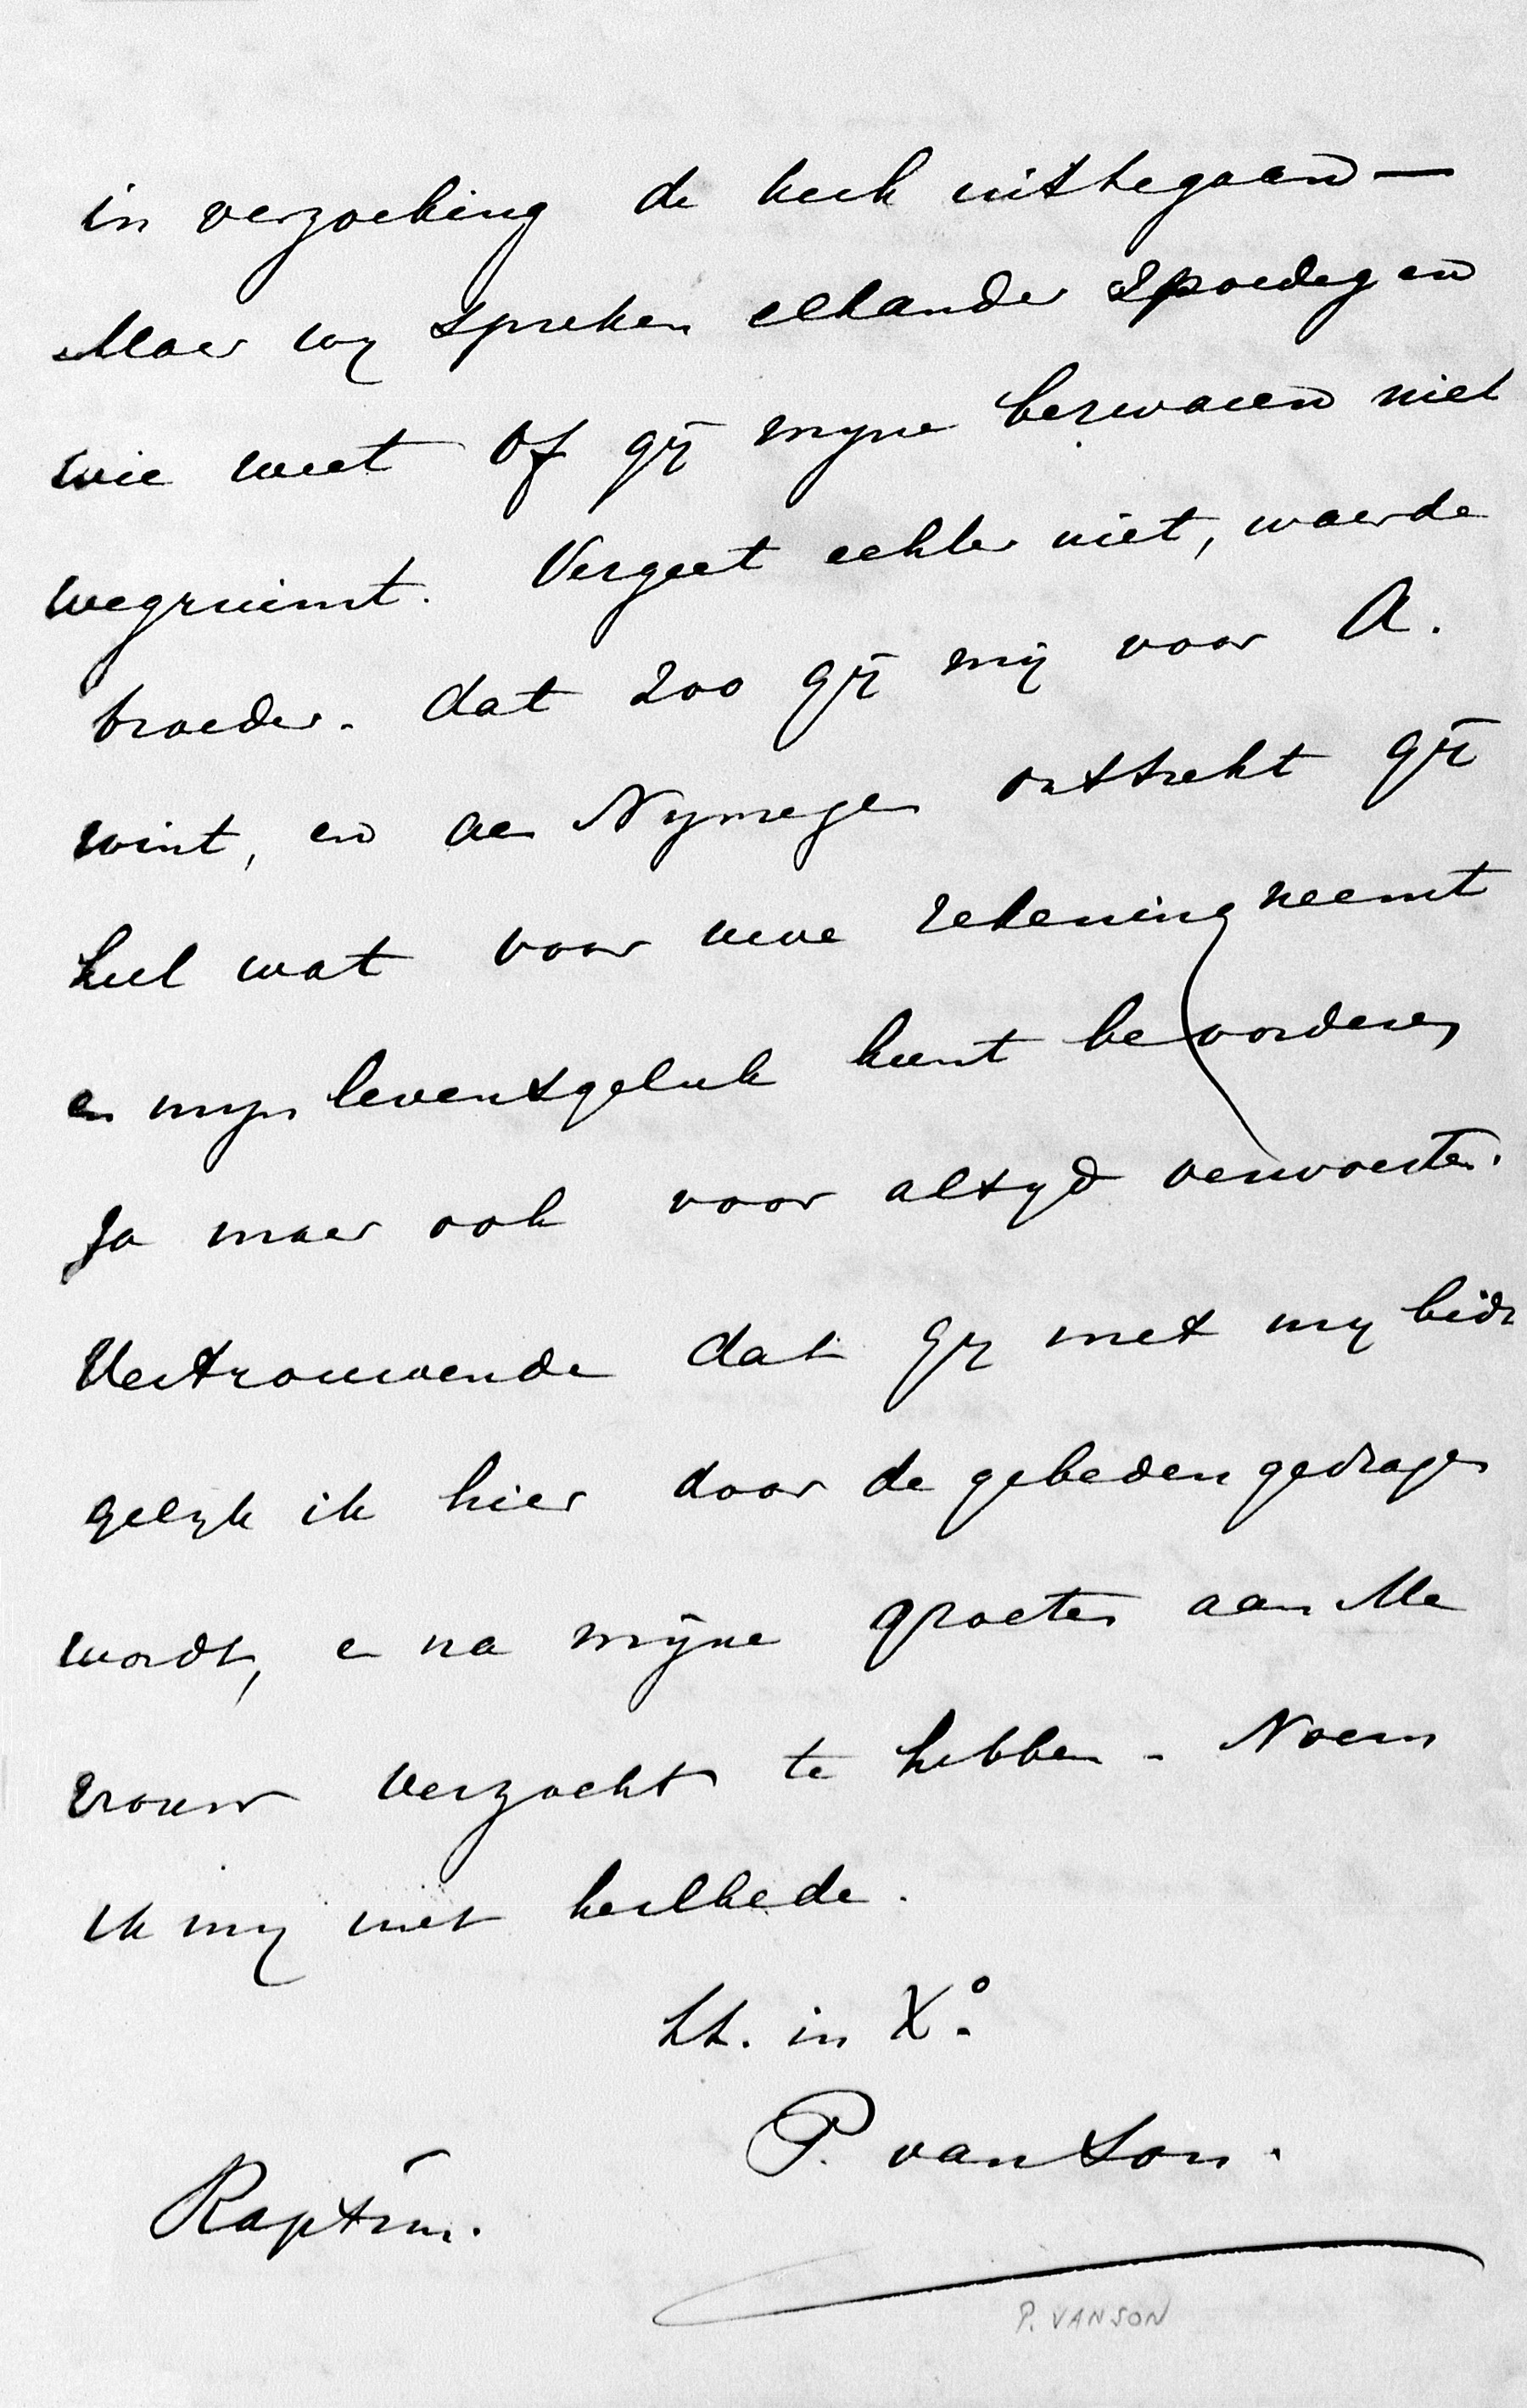 in verzoeking de kerk uit te gaan —
Maar wij spreken elkander spoedig en
wie weet of gij mijne bezwaren niet
wegruimt. Vergeet echter niet, waarde
broeder. dat zoo gij mij voor A.
wint, en aan Nymegen onttrekt gij
heel wat voor uwe rekening neemt
en mijn levensgeluk kunt bevorderen
Ja maar ook voor altyd verwoesten.
Vertrouwende dat gij met mij bidt
gelyk ik hier door de gebeden gedragen
wordt, en na mijne groeten aan Me
vrouw verzocht te hebben - Noem
ik mij met heilbede.
tt. in Xº.
P. van Son.
Raptim.
P. VAN SON